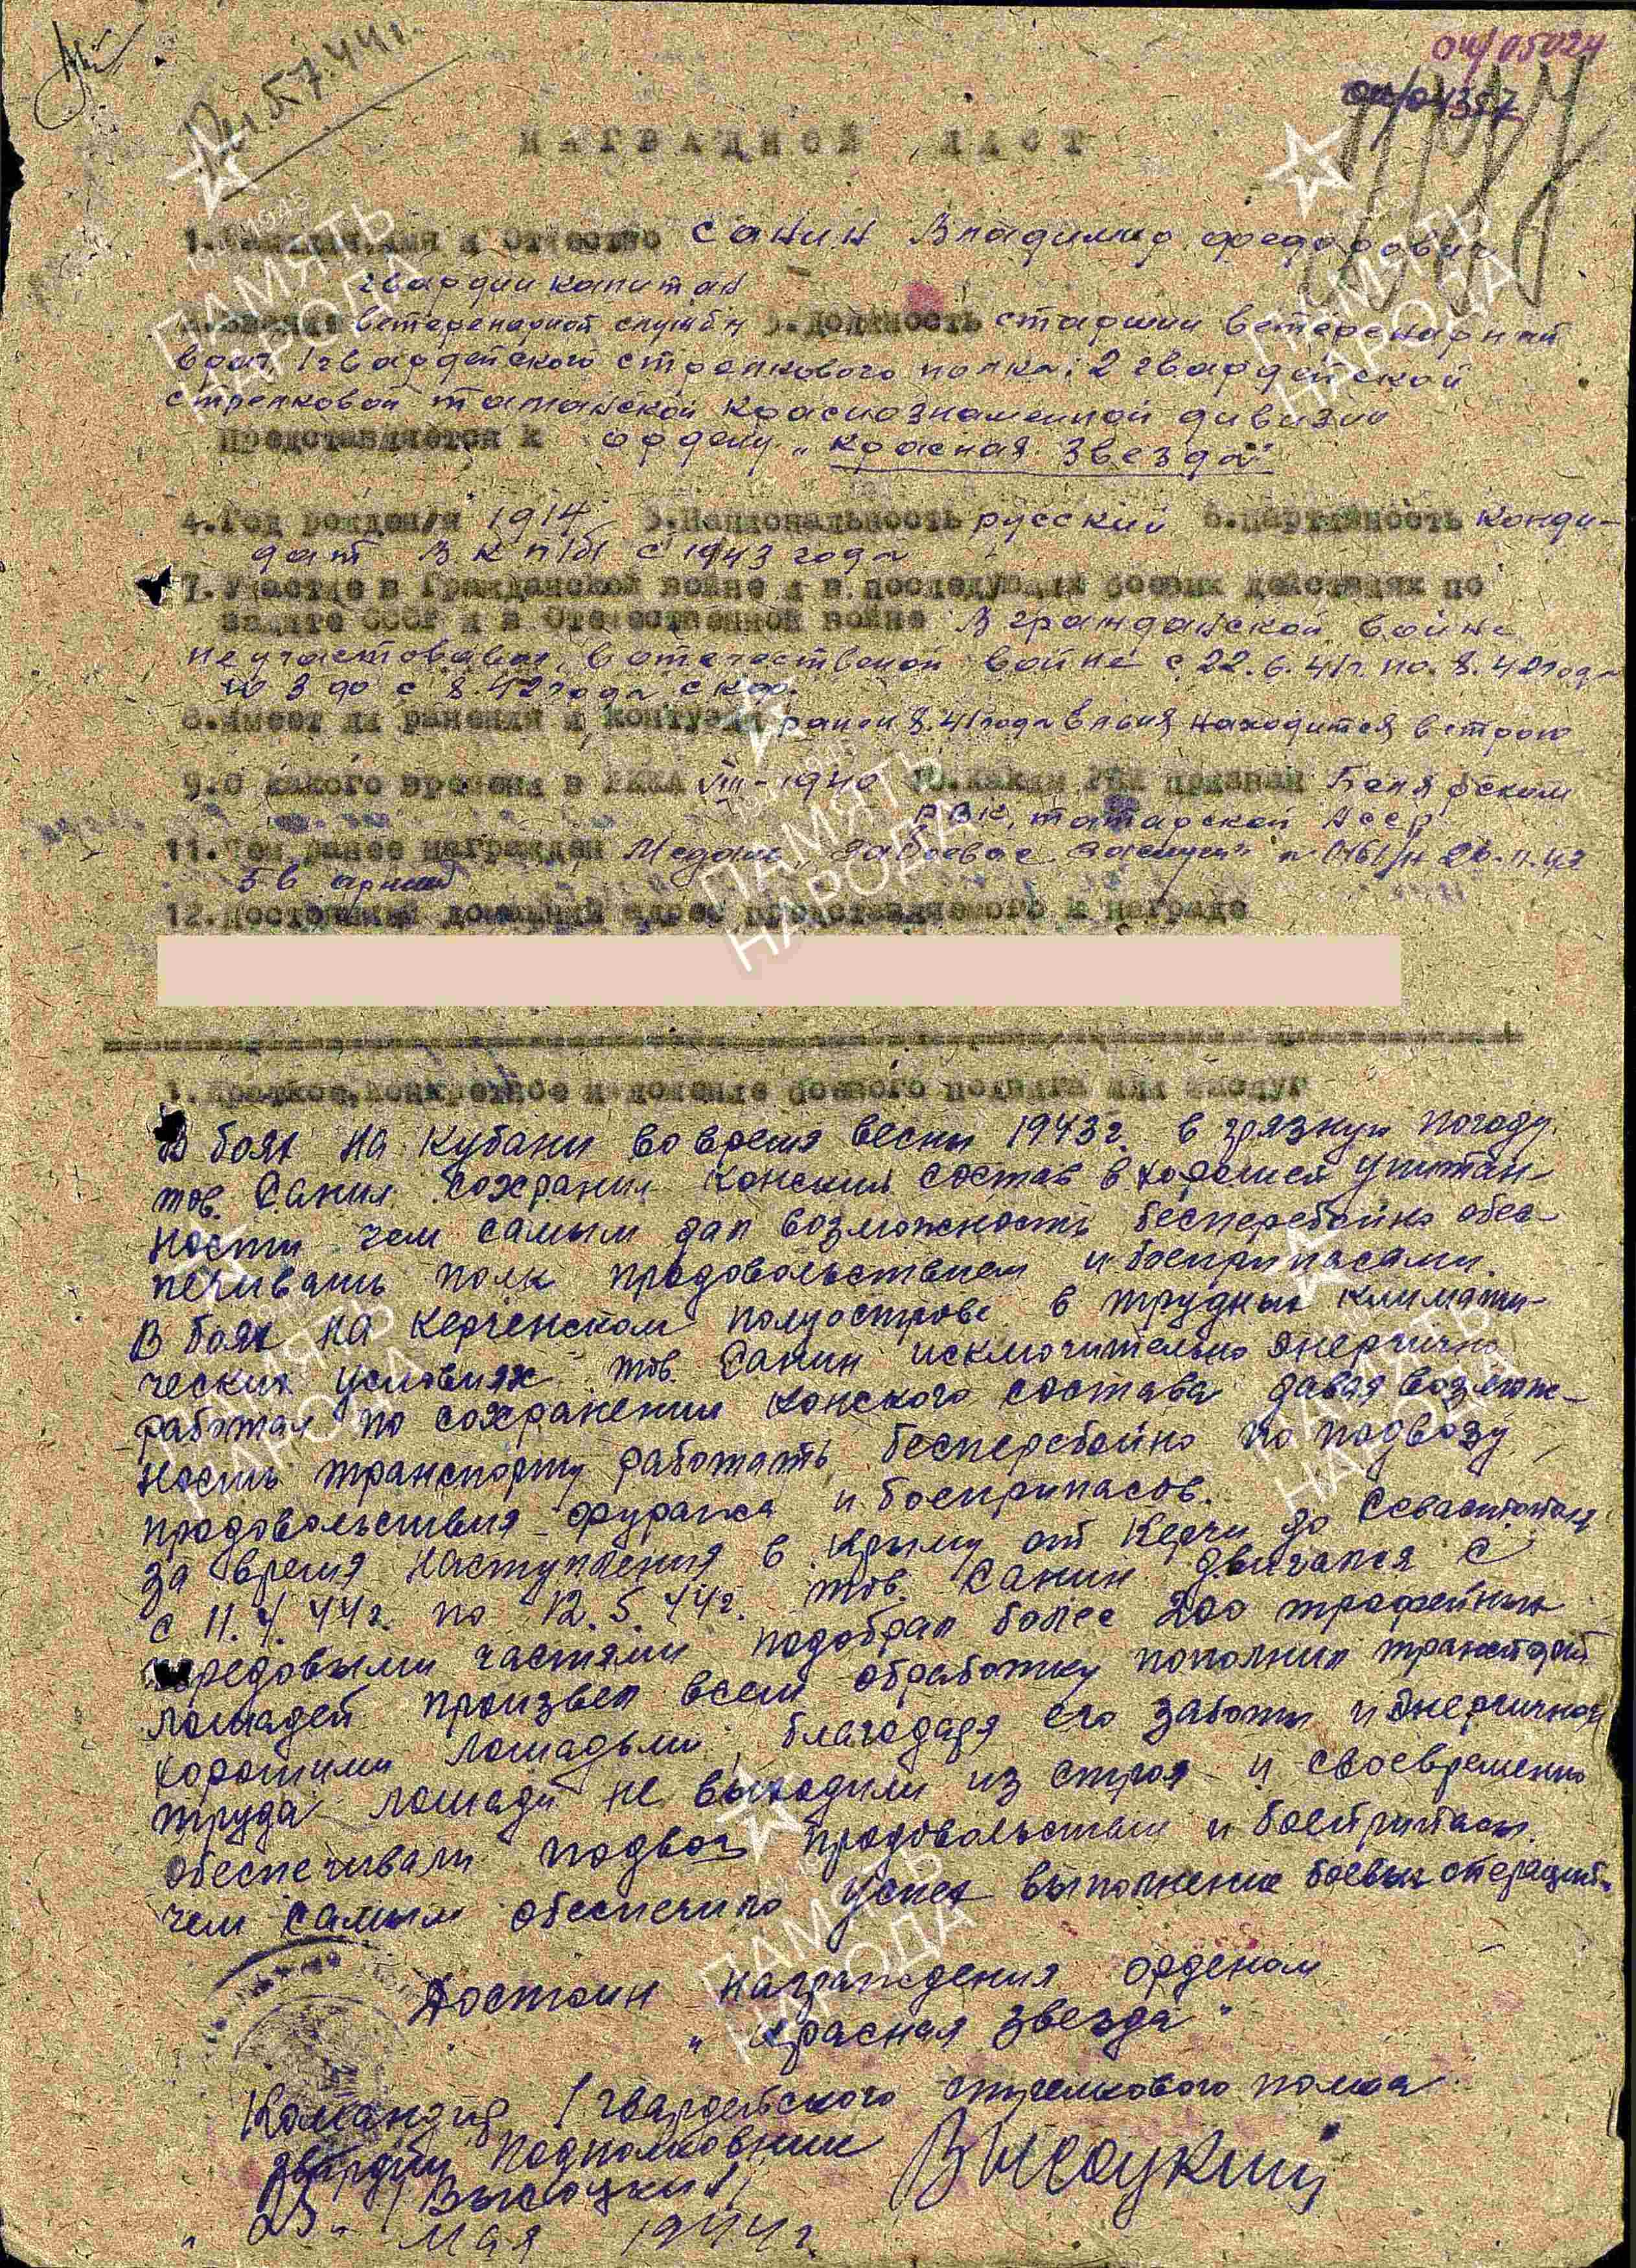 Он/05024
Он/04357
57.44г.
НАГРАДНОЙ ЛИСТ
1. Фамилия, имя и Отчество Санин Владимир Федорович
гвардии капитан
2. Звание ветеренарной службы 3. Должность старший ветеренарный
врач 1 гвардейского стрелкового полка; 2 гвардейской
стрелковой таманской краснознаменной дивизии
Представляется к ордену „Красная Звезда"
4. Год рождения 1914 5. Национальность русский 6. Партийность Канди-
дат ВКП/б/ с 1943 года
7. Участие в Гражданской войне и в последующих боевых действиях по
защите СССР и в Отечественной войне В гражданской войне
не участвовал, в отечественной войне с 22.6.41г. по 8.42 года
с 8.42 года СКФ.
8. Имеет ли ранения и контузии ранен 8.41 года Ельня находится в строю
9. С какого времени в РККА VIII-1940 10. Каким РВК призван
РВК, татарской АССР
11. Чем ранее награжден Медаль „За боевые Заслуги"
56 армии
12. Постоянный домашний адрес представляемого к награде
1. Краткое, конкретное изложение боевого подвига или заслуг
В боях на Кубани во время весны 1943г. в грязную погоду
тов. Санин сохранил конский состав в хорошей упитан-
ности чем самым дал возможность бесперебойно обес-
печивать полк продовольствием и боеприпасами.
В боях на Керченском полуострове в трудных климати-
ческих условиях тов. Санин исключительно энергично
работал по сохранению конского состава давая возмож-
ность транспорту работать бесперебойно по подвозу
продовольствия фуража и боеприпасов.
За время наступления в Крыму от Керчи до Севастополя
с 11.4.44г. по 12.5.44г. тов. Санин двигался с
передовыми частями подобрал более 200 трофейных
лошадей произвел всем обработку пополнил транспорт
хорошими лошадьми, благодаря его заботы и энергичного
труда лошади не выходили из строя и своевременно
обеспечивали подвоз продовольствия и боеприпасы.
чем самым обеспечило успех выполнение боевых операций.
Достоин награждения орденом
„Красная звезда"
Командир 1 гвардейского стрелкового полка
гвардии подполковник
/Высоцкий/ Высоцкий
„25" мая 1944г.
ПАМЯТЬ
НАРОДА
ПАМЯТЬ
НАРОДА
ПАМЯТЬ
НАРОДА
ПАМЯТЬ
НАРОДА
ПАМЯТЬ
НАРОДА
ПАМЯТЬ
НАРОДА